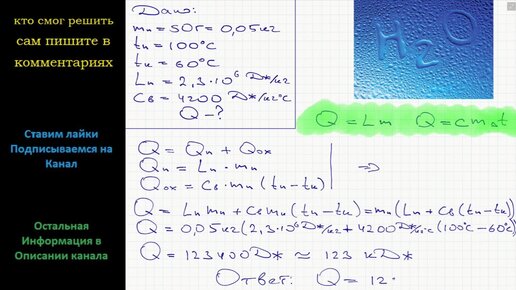 кто смог решить
сам пишите в
комментариях
Ставим лайки
Подписываемся на
Канал
Остальная
Информация в
Описании канала
Дано:
mп = 50г = 0,05кг
tн = 100°C
tк = 60°C
Lп = 2,3·10⁶ Дж/кг
Cв = 4200 Дж/кг°C
Q - ?
H2O
Q = Lm Q = cmΔt
Q = Qп + Qох
Qп = Lп · mп
Qох = Cв · mп (tн - tк)
=>
Q = Lп mп + Cв mп (tн - tк) = mп (Lп + Cв (tн - tк))
Q = 0,05кг (2,3·10⁶ Дж/кг + 4200 Дж/кг°C (100°C - 60°C)
Q = 123400Дж ≈ 123 кДж
Ответ: Q = 12